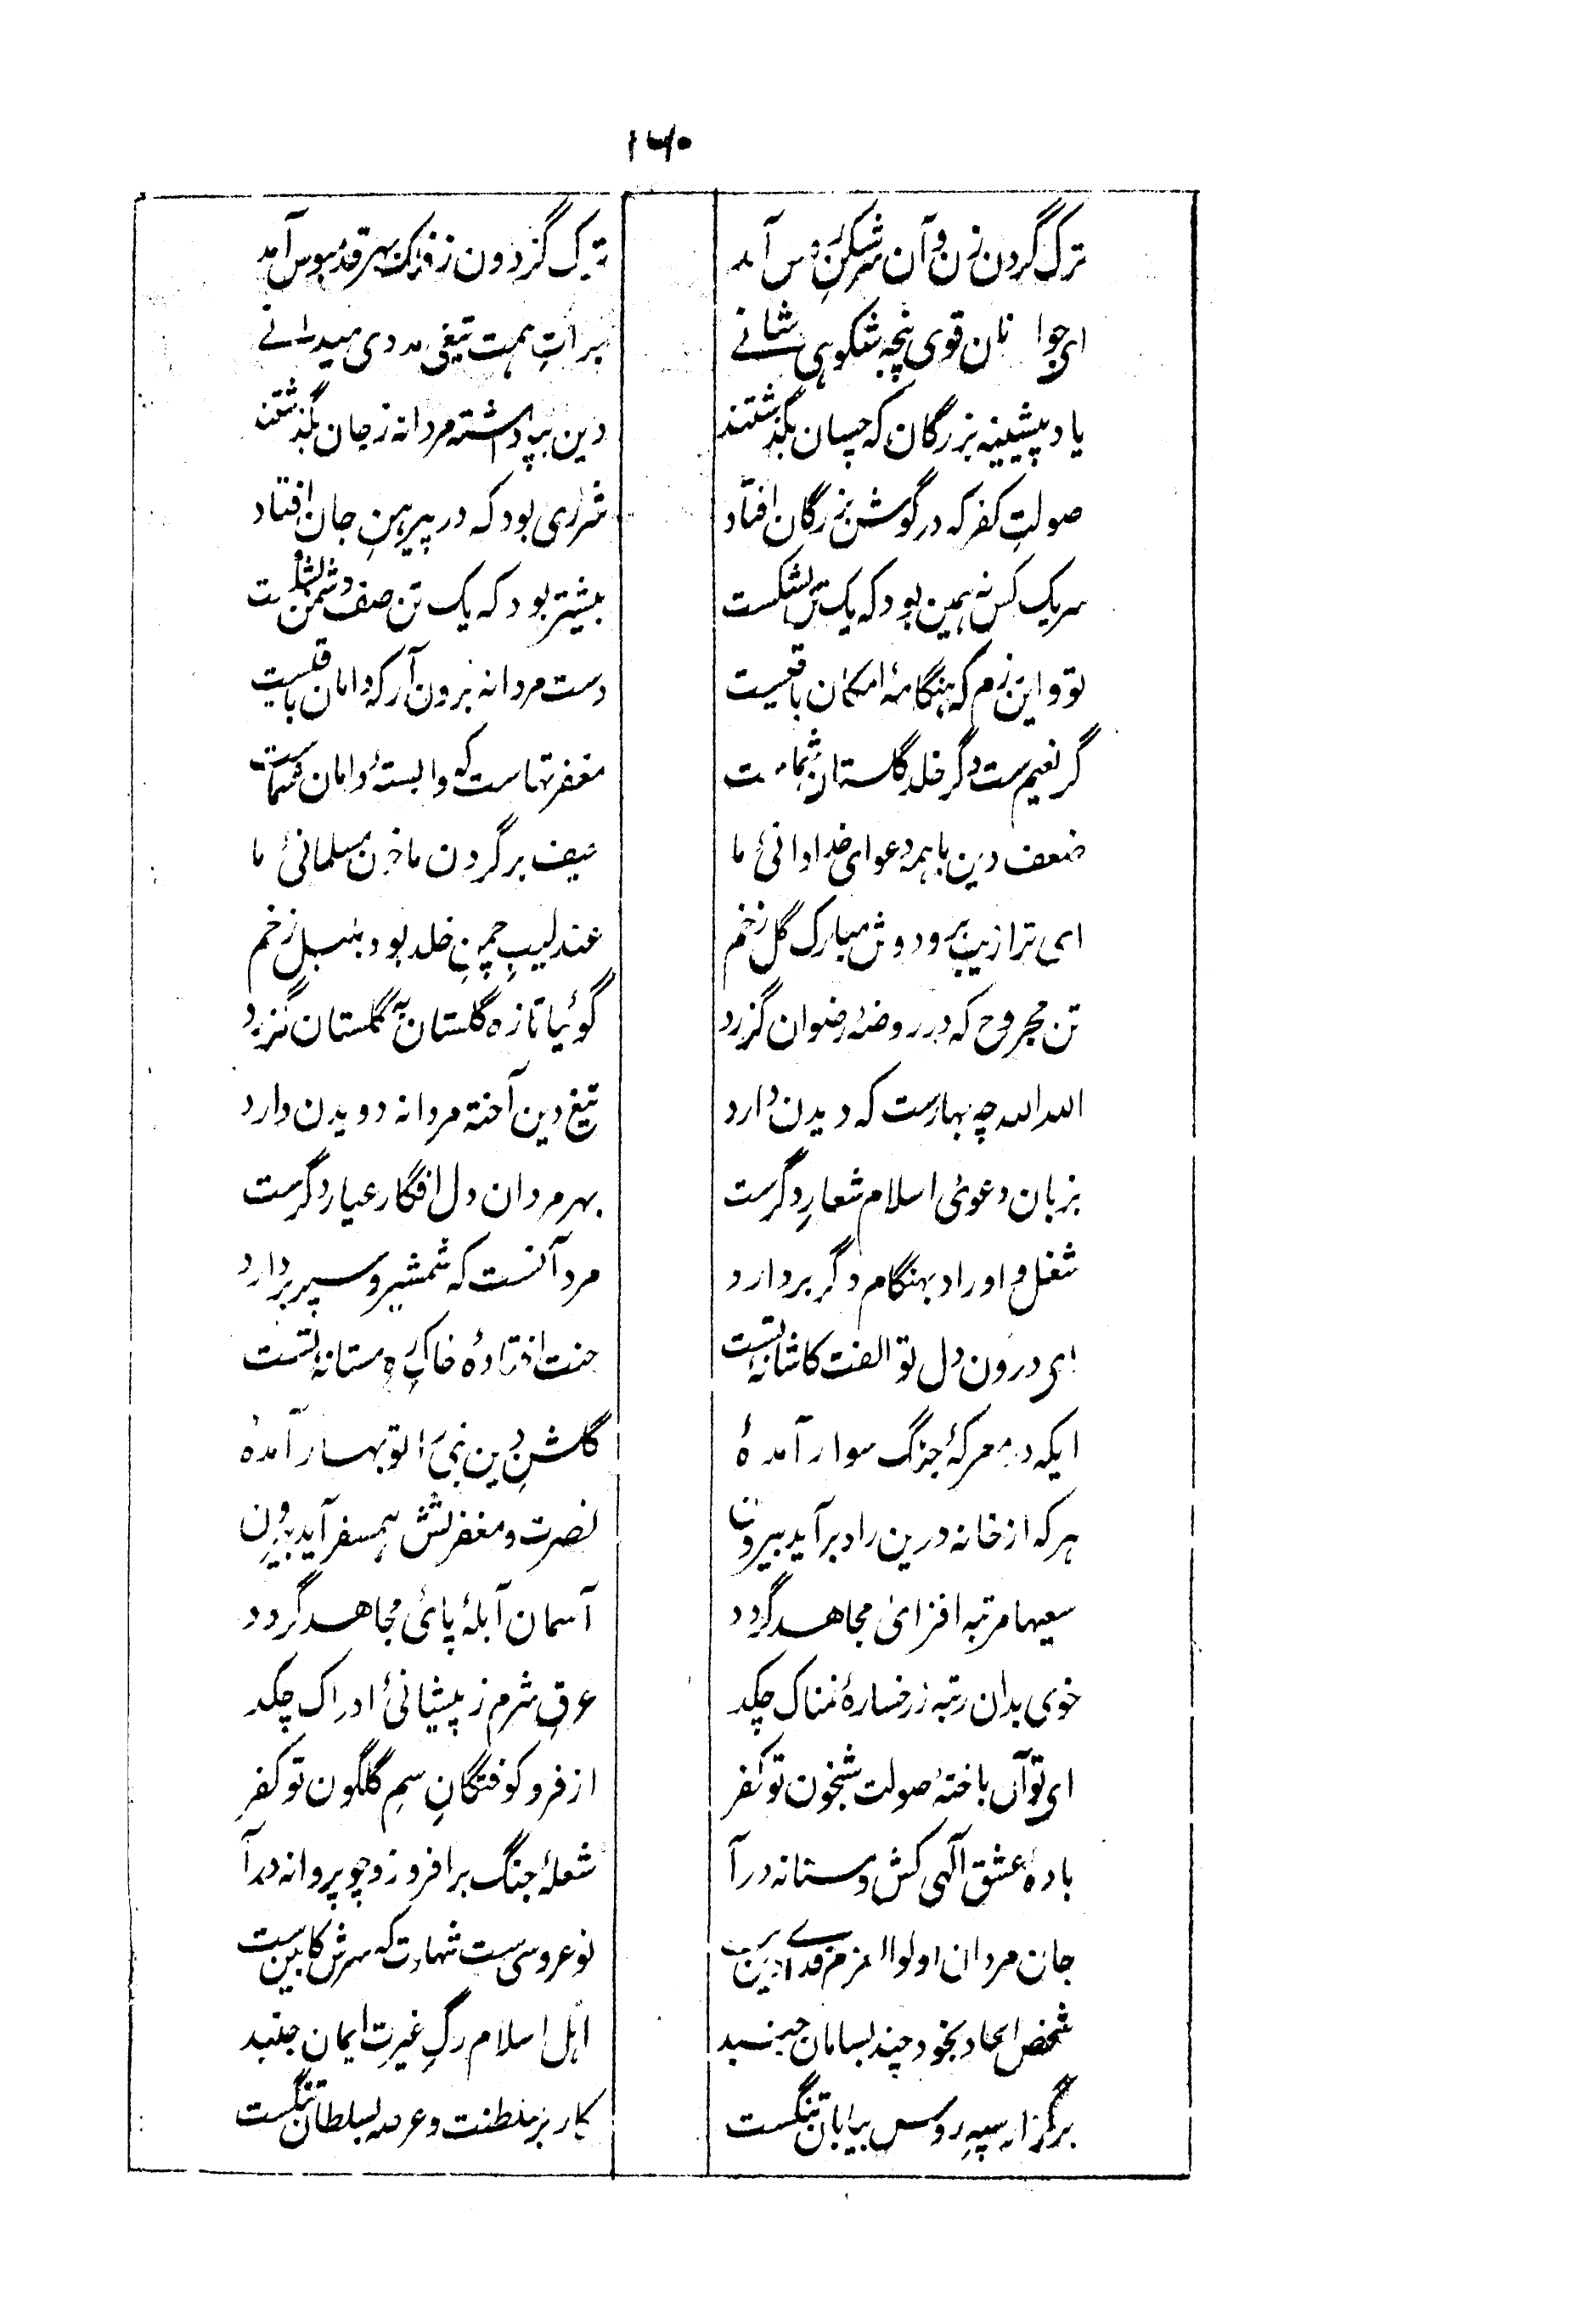 ۱۶۰
ترک گردن زن و آن سرشکن روس آمد
ترک گردون ز فلک بهر قدمبوس آمد
ای جوانان قوی پنجه شکوهی شانے
برات همت تیغی مددی میدانے
یاد پیشینه بزرگان که چسان بگذشتند
دین بپا داشته مردانه ز جان بگذشتند
صولتِ کفر که در گوش بزرگان افتاد
شرری بود که در پیرهنِ جان افتاد
سر یک کس نه همین بود که یک تن بشکست
بیشتر بود که یک تن صف دشمن بشکست
تو و این رزم که هنگامهٔ امکان باقیست
دست مردانه برون آر که دامان باقیست
گر نعیم ست و گر خلد گلستان شماست
مغفرتهاست که وابستهٔ دامان شماست
ضعف دین با همه دعوای خدادانیٔ ما
حیف بر گردن ما خون مسلمانیٔ ما
ای ترا زیب بر و دوش مبارک گل زخم
عندلیبِ چمنِ خلد بود بسملِ زخم
تن مجروح که در روضهٔ رضوان گزرد
گوئیا تازه گلستان به گلستان گزرد
الله الله چه بهارست که دیدن دارد
تیغ دین آخته مردانه دویدن دارد
بزبان دعویٔ اسلام شعارِ دگرست
بهر مردان دل افگار عیار دگرست
شغل و اوراد بهنگام دگر بردارد
مرد آنست که شمشیر و سپر بردارد
ای درون دل تو الفت کاشانهٔ تست
جنت افتادهٔ خاکِ رهِ مستانهٔ تست
ایکه در معرکهٔ جنگ سوار آمدهٔ
گلشنِ دین نبی را تو بهار آمدهٔ
هر که از خانه درین راه برآید بیرون
نصرت و مغفرتش همسفر آید بیرون
سعیها مرتبه افزایٔ مجاهد گردد
آسمان آبلهٔ پایٔ مجاهد گردد
خوی بدان رتبه ز رخسارهٔ نمناک چکد
عرقِ شرم ز پیشانیٔ ادراک چکد
ای توآں باختهٔ صولت شبخون تو کفر
از فرو کوفتگانِ سمِ گلگون تو کفر
بادهٔ عشق آلهی کش و مستانه درآ
شعلهٔ جنگ برافروز و چو پروانه درآ
جان مردان اولوالعزم فدائے دین ست
نوعروسی ست شهادت که سرش کابین ست
شخص الحاد بخود چند بسامان جنبد
اهل اسلام رگِ غیرتِ ایمان جنبد
بر گزار سپهِ روس بیابان تنگست
کار بر سلطنت و عرصه بسلطان تنگست